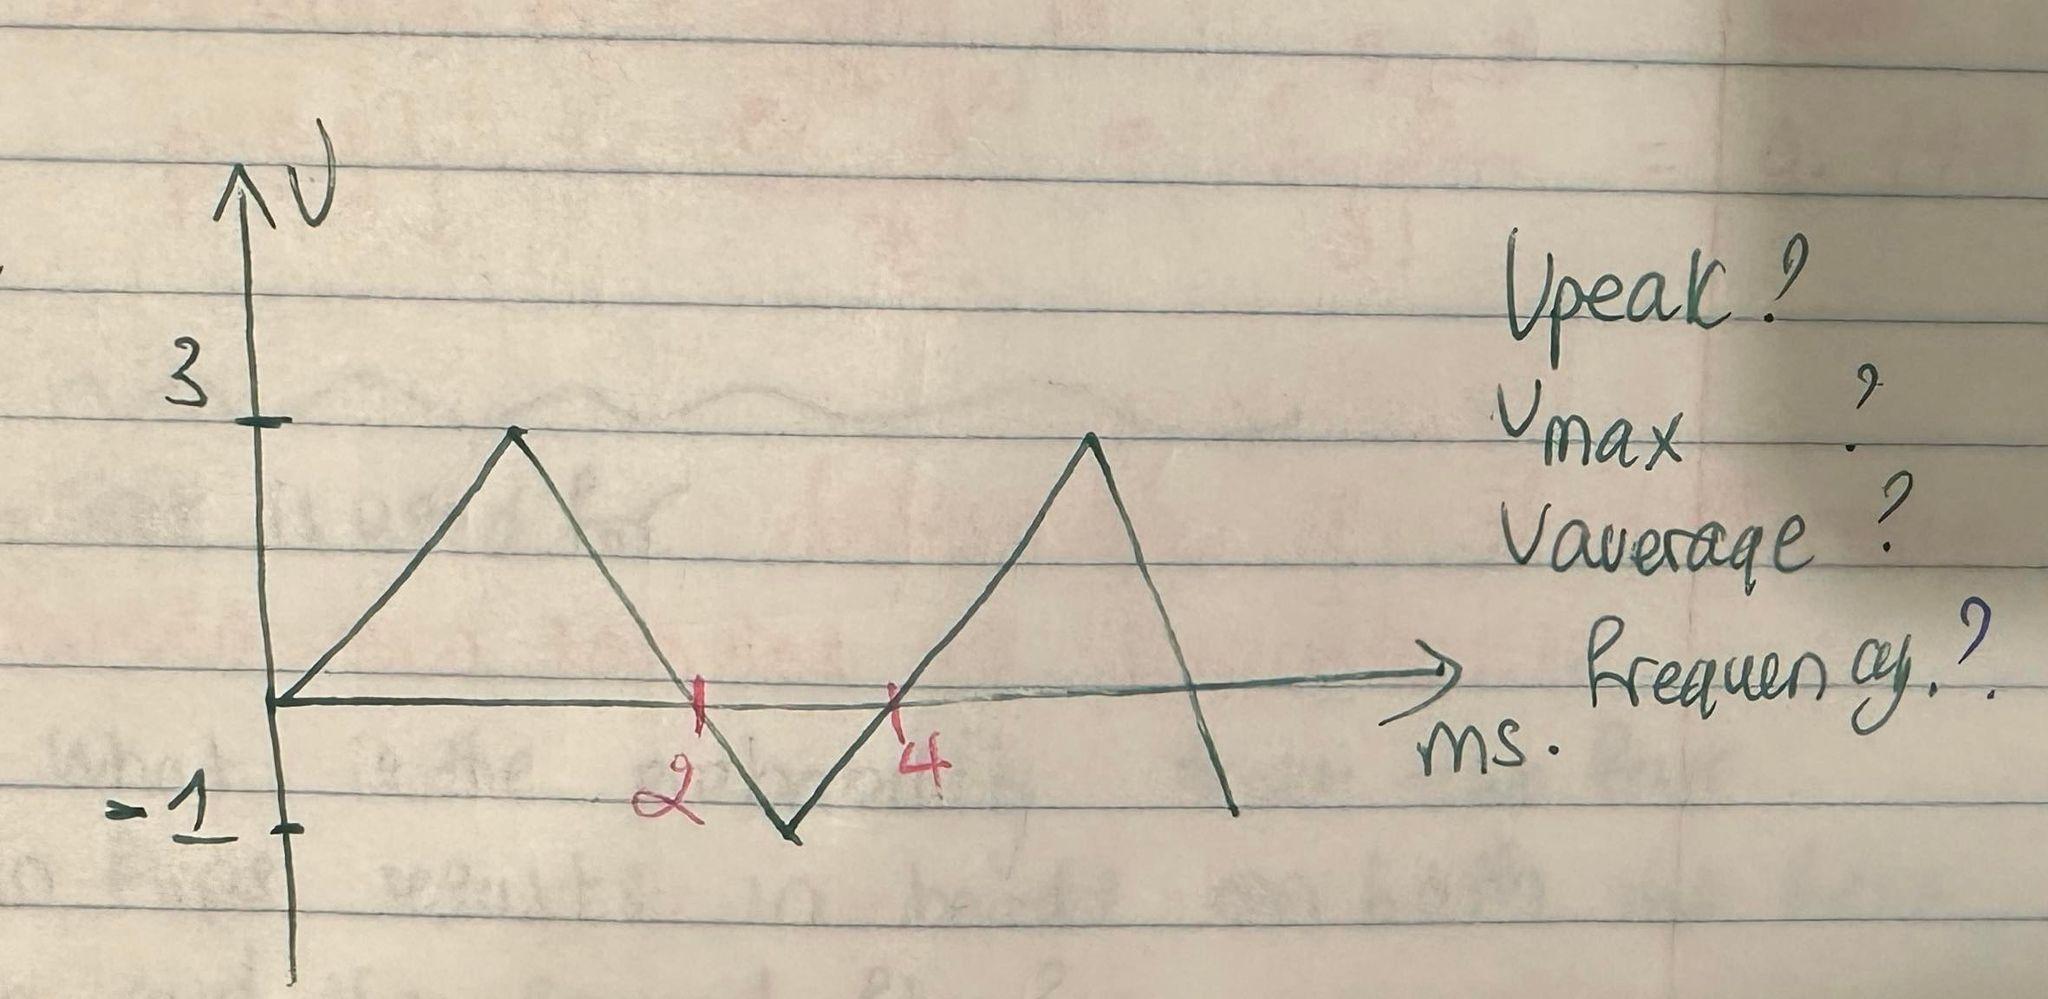 V
3
-1
2
4
ms.
Vpeak?
Vmax ?
Vaverage ?
frequency.?